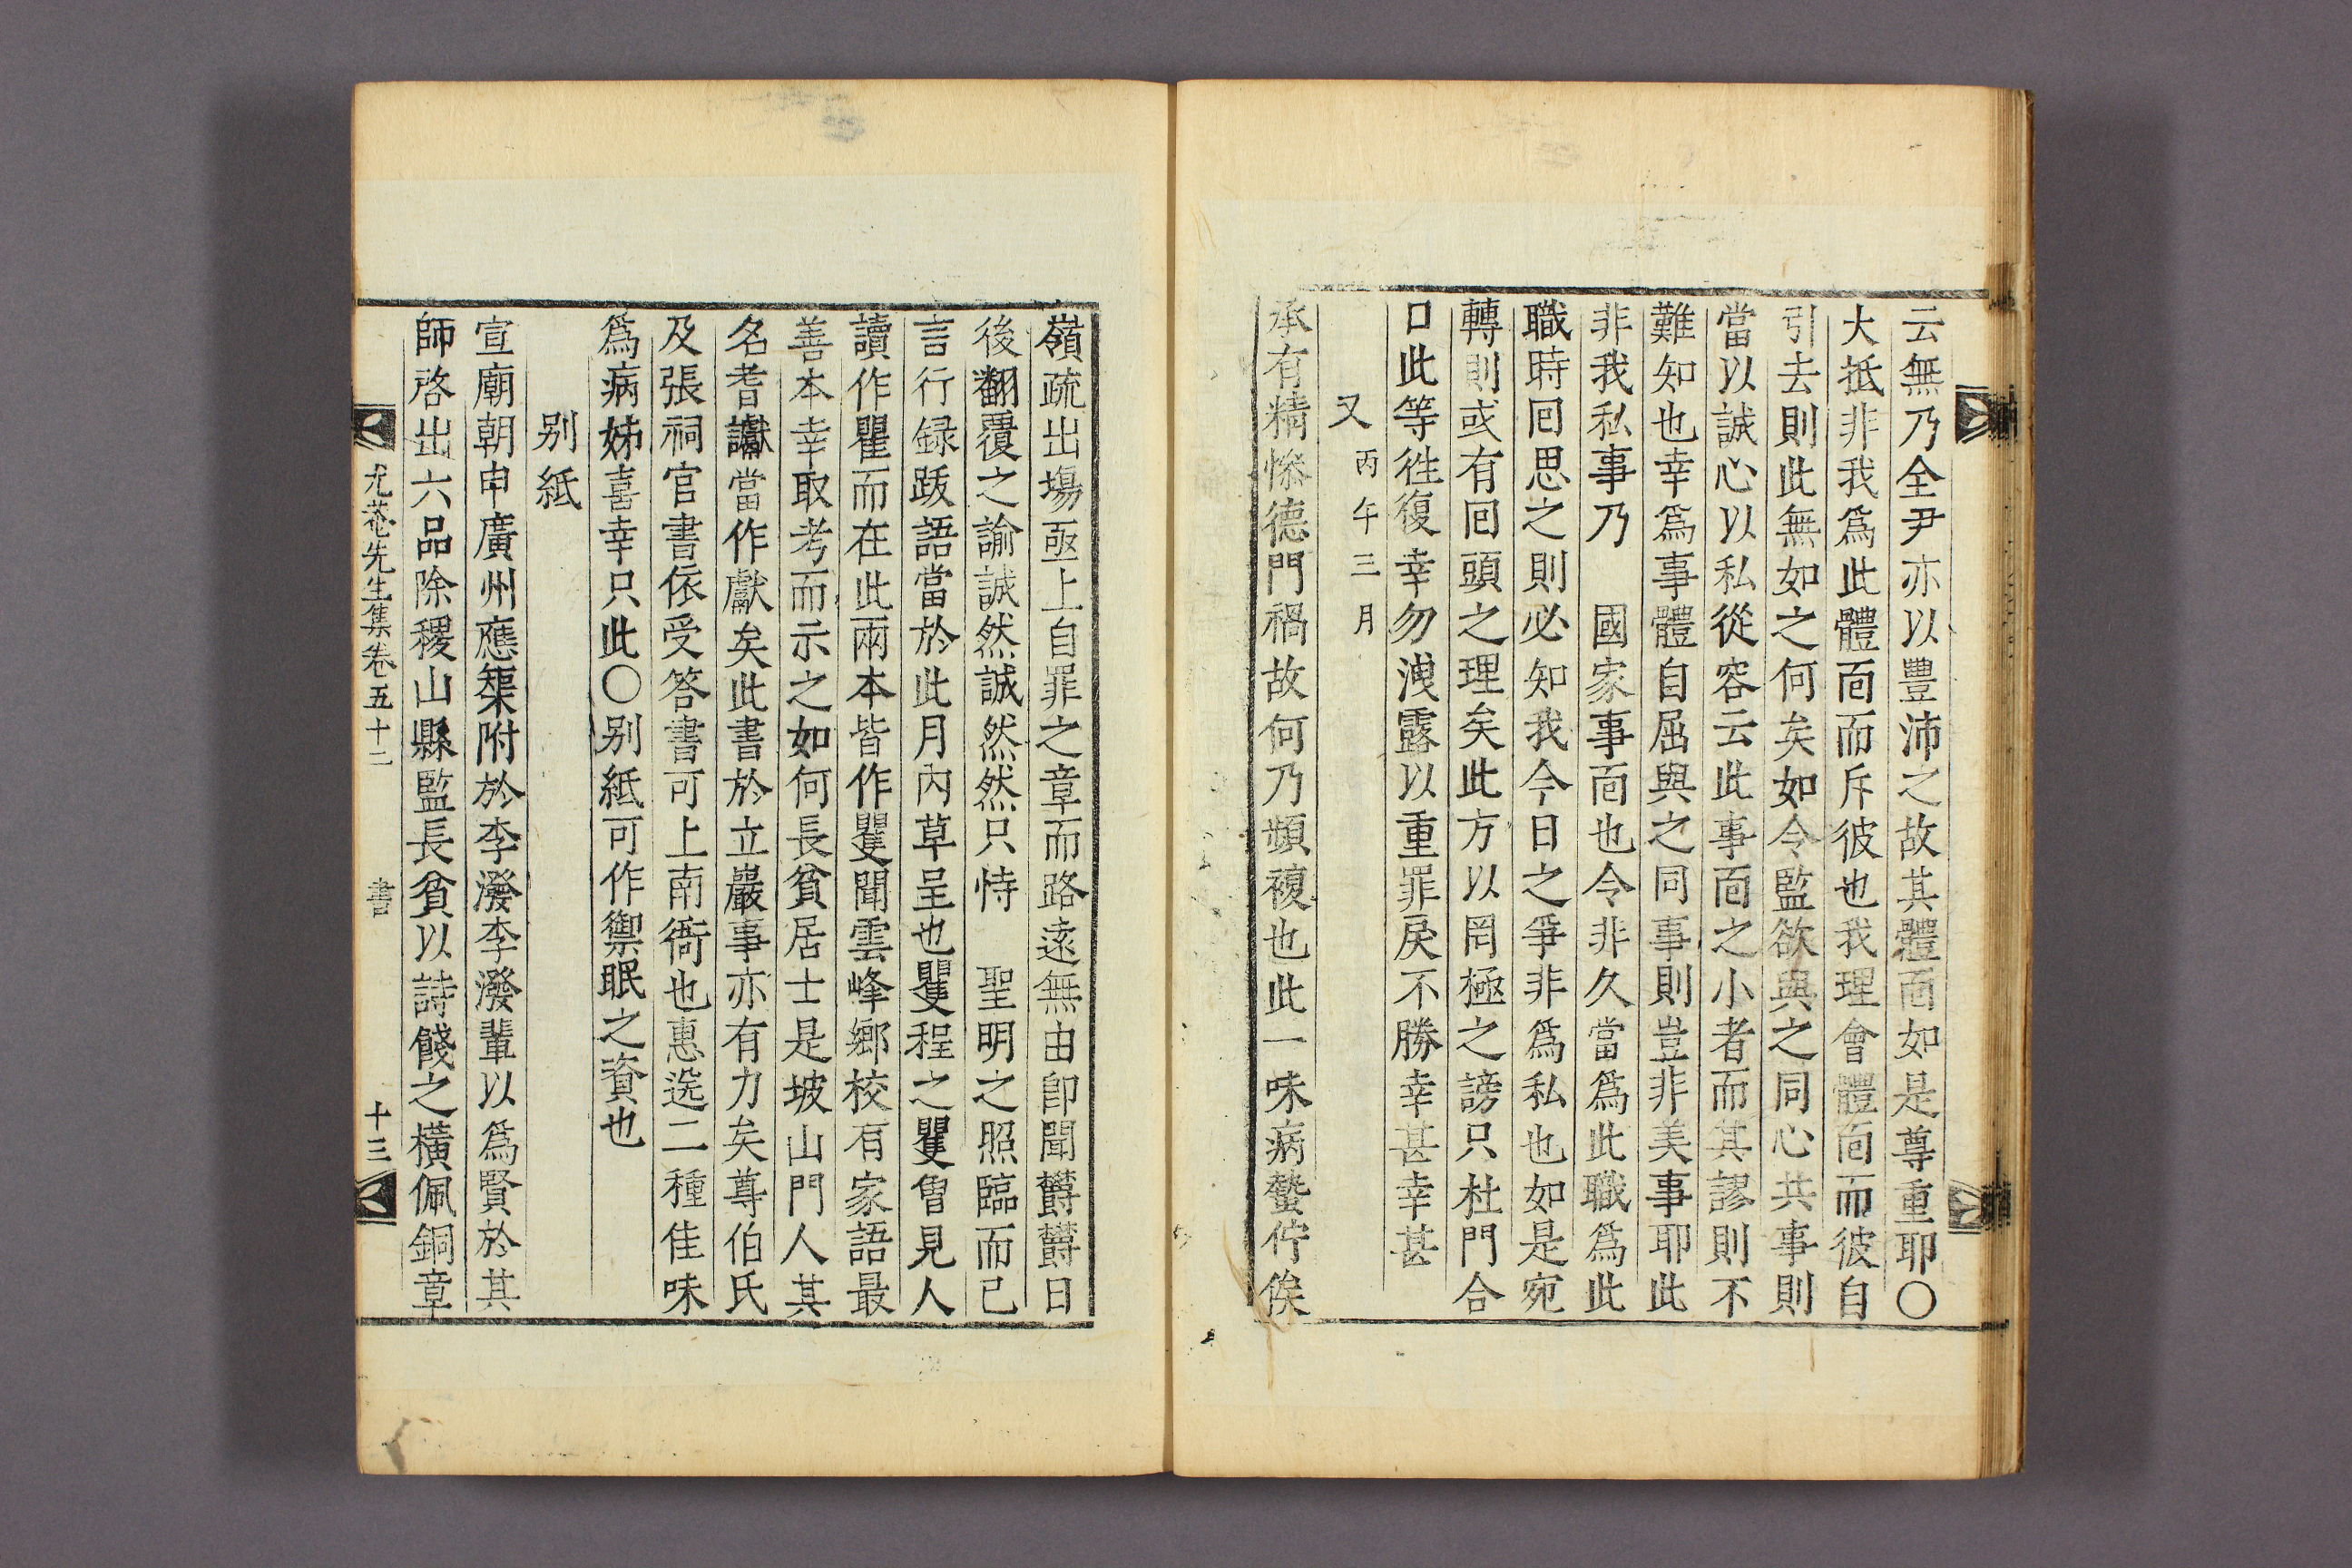 云無乃全尹亦以豐沛之故其體面如是尊重耶○
大抵非我爲此體面而斥彼也我理會體面而彼自
引去則此無如之何矣如令監欲與之同心共事則
當以誠心以私從容云此事面之小者而其謬則不
難知也幸爲事體自屈與之同事則豈非美事耶此
非我私事乃　國家事面也令非久當爲此職爲此
職時回思之則必知我今日之爭非爲私也如是宛
轉則或有回頭之理矣此方以罔極之謗只杜門合
口此等徃復幸勿洩露以重罪戾不勝幸甚幸甚
又丙午三月
承有精慘德門禍故何乃頻複也此一味病蟄佇俟
嶺疏出場亟上自罪之章而路遠無由卽聞欝欝日
後翻覆之諭誠然誠然然只恃　聖明之照臨而已
言行録跋語當於此月內草呈也瞿程之瞿曾見人
讀作瞿而在此兩本皆作瞿聞雲峰鄉校有家語最
善本幸取考而示之如何長貧居士是坡山門人其
名耆讞當作獻矣此書於立巖事亦有力矣尊伯氏
及張祠官書依受答書可上南衙也惠送二種佳味
爲病姊喜幸只此○别紙可作禦眠之資也
别紙
宣廟朝申廣州應榘附於李潑李潑輩以爲賢於其
師啓出六品除稷山縣監長貧以詩餞之橫佩銅章
尤菴先生集卷五十二　書　十三